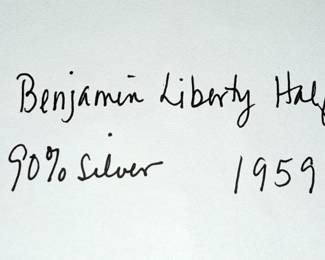 Benjamin Liberty Half
90% Silver 1959